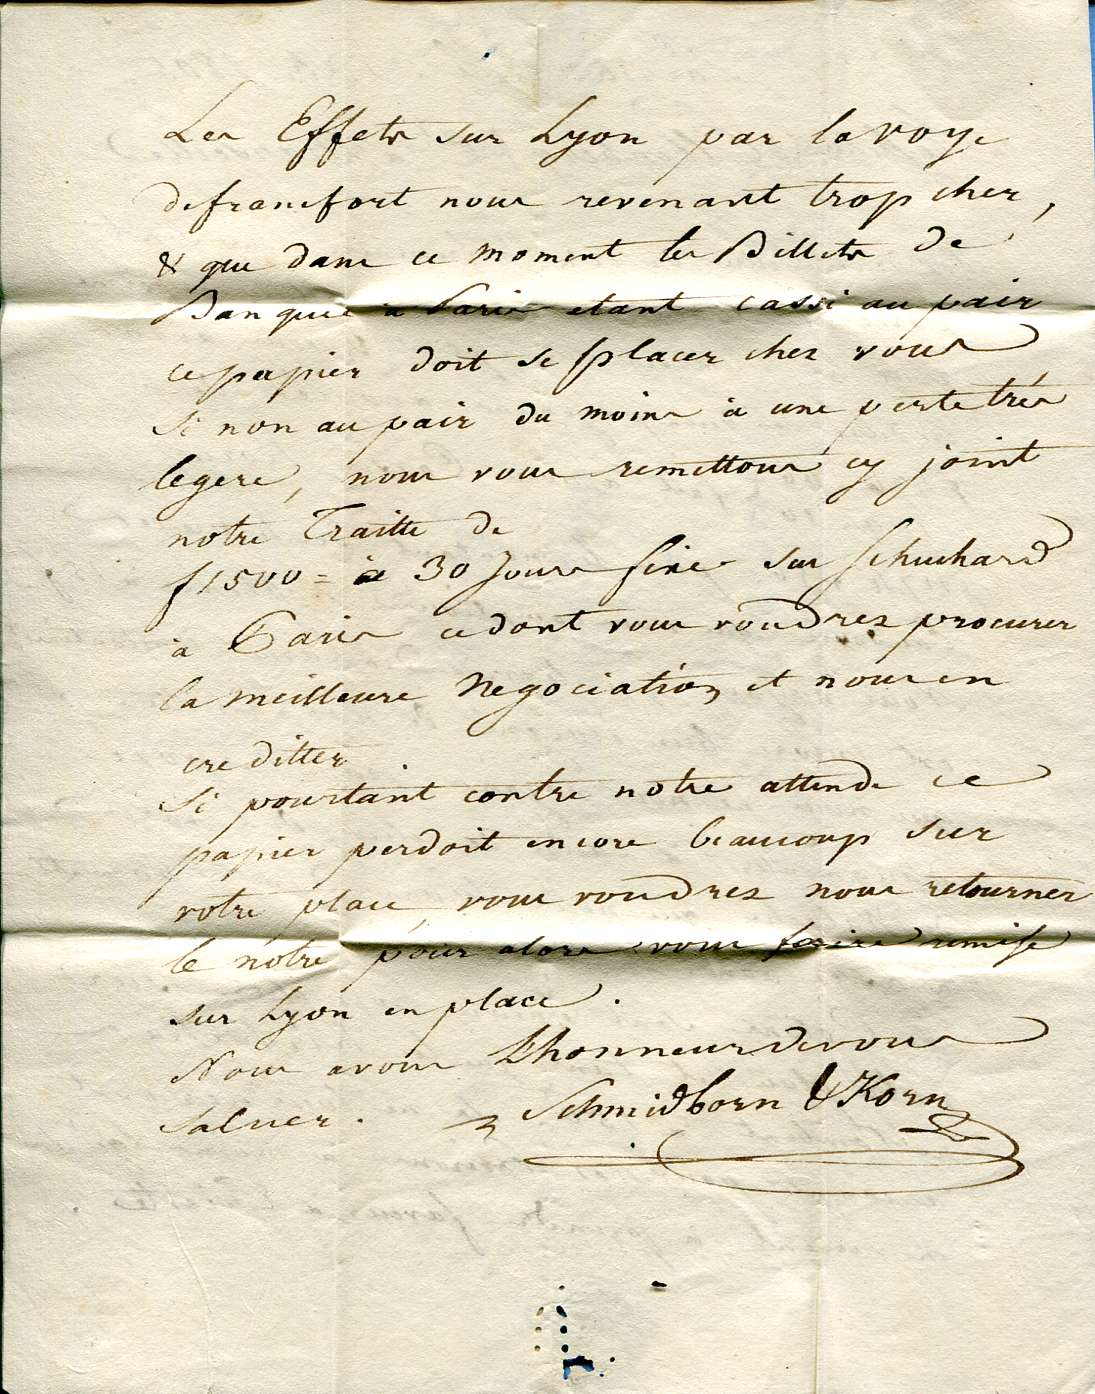 Les Effets sur Lyon par la voye
de francfort nous revenant trop cher,
& que dans ce moment les Billets de
Banque à Paris etant cassi au pair
ce papier doit se placer chez vous
si non au pair du moins à une perte trés
legere, nous vous remettons cy joint
notre Traitte de
f 1500 = à 30 Jours fixe sur Schuchard
à Paris ce dont vous voudrez procurer
la meilleure Negociation, et nous en
crediter
Si pourtant contre notre attende ce
papier perdoit encore beaucoup sur
votre place, vous voudrez nous retourner
le notre pour alors vous faire remise
sur Lyon en place.
Nous avons L'honneur de vous
saluer.
Schmidborn & Korn